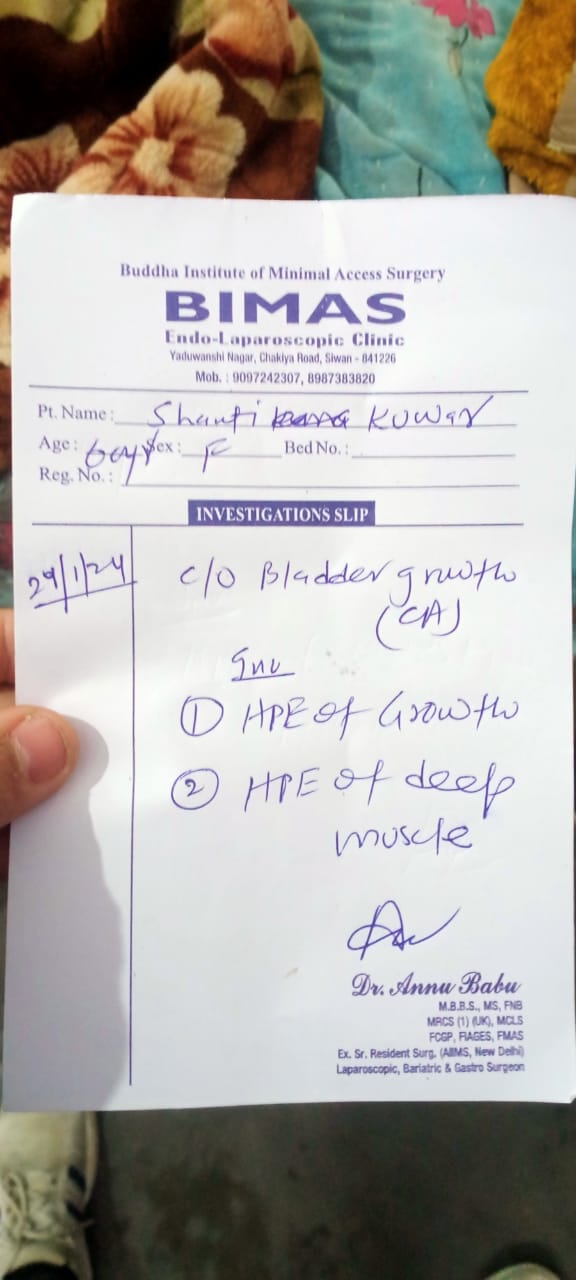 Buddha Institute of Minimal Access Surgery
BIMAS
Endo-Laparoscopic Clinic
Yaduwanshi Nagar, Chakiya Road, Siwan - 841226
Mob. : 9097242307, 8987383820
Pt. Name : Shanti Kuwar
Age : 60yr Sex : F Bed No. :
Reg. No. :
INVESTIGATIONS SLIP
29/1/24 c/o Bladder growth
(CA)
Inv
① HPE of Growth
② HPE of deep
muscle
Dr. Annu Babu
M.B.B.S., MS, FNB
MRCS (1) (UK), MCLS
FCGP, FIAGES, FMAS
Ex. Sr. Resident Surg. (AIIMS, New Delhi)
Laparoscopic, Bariatric & Gastro Surgeon